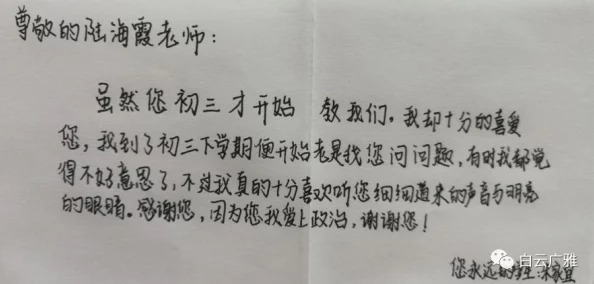 尊敬的陆海霞老师：
虽然您初三才开始 教我们。我却十分的喜爱
您，我到了初三下学期便开始老是找您问问题，有时我都觉
得不好意思了，不过我真的十分喜欢听您细细道来的声音与明亮
的眼睛。感谢您，因为您我爱上政治，谢谢您！
您永远的学生：
白云广雅